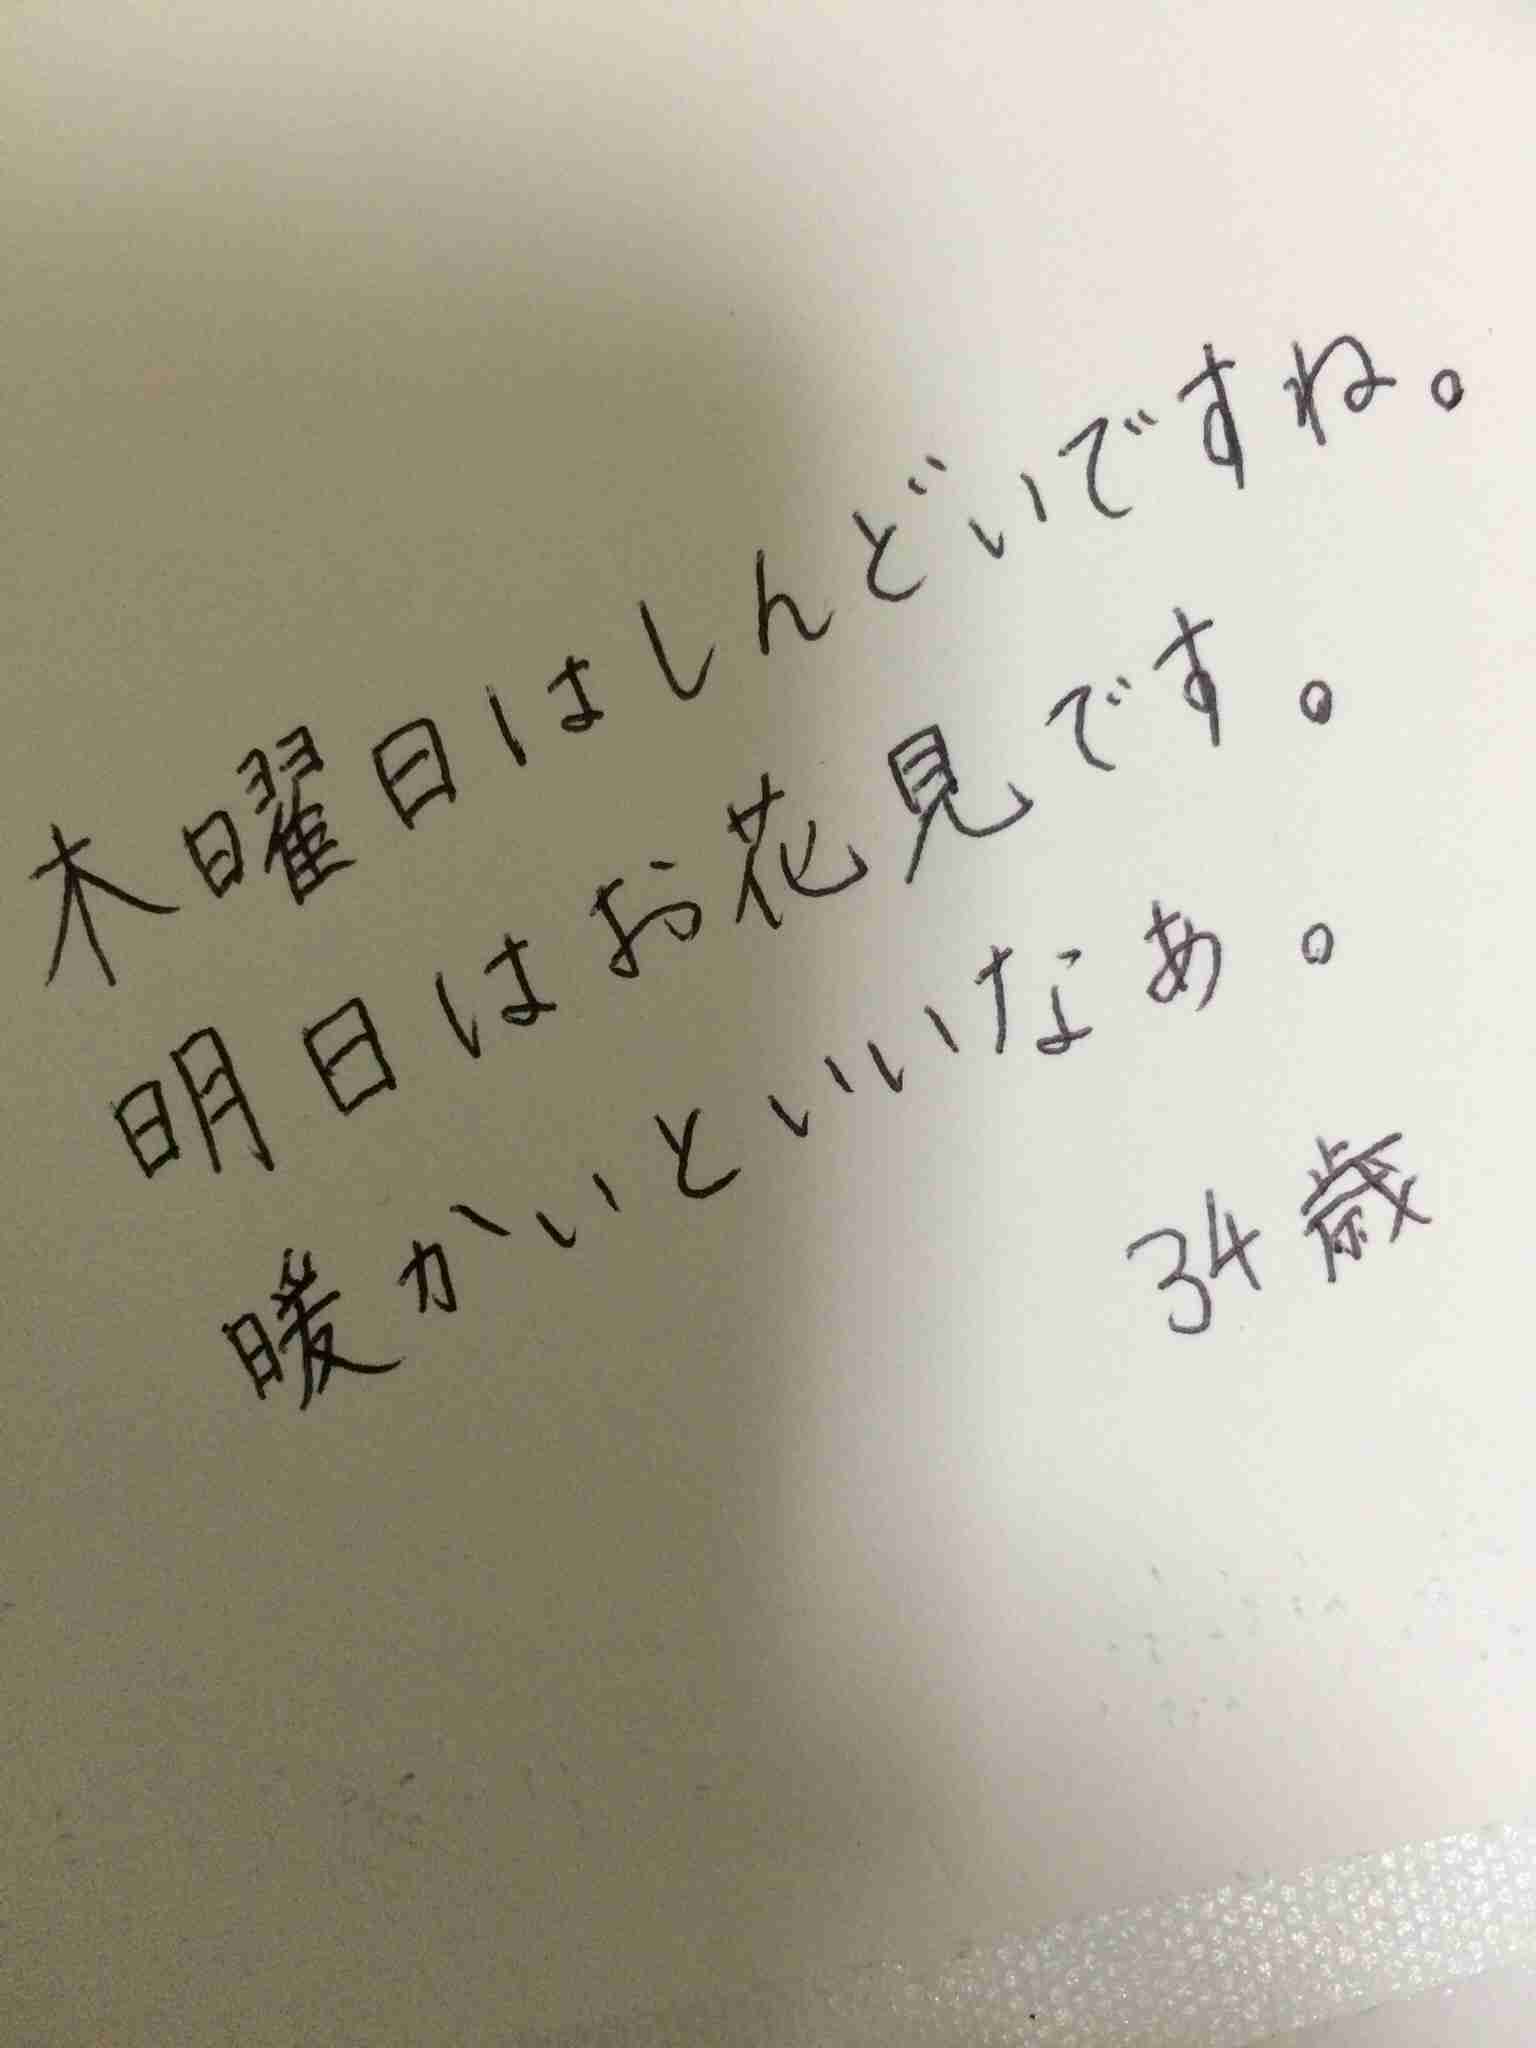 木曜日はしんどいですね。
明日はお花見です。
暖かいといいなぁ。
34歳